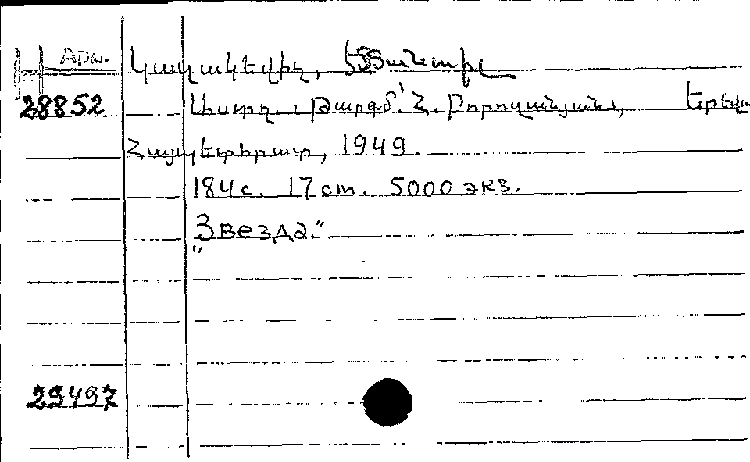 Арм.
Կազակեվիչ, Էմմանուիլ
28852 Աստղ. Թարգմ. Հ. Երև.
Հայպետհրատ, 1949.
184 с. 17 cm. 5000 экз.
"Звезда."
29497